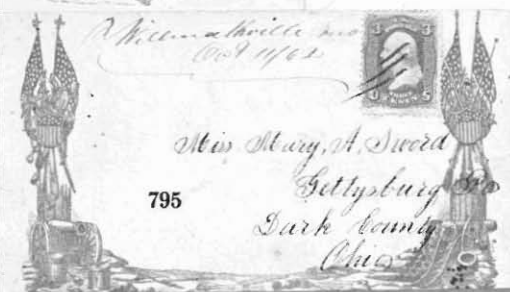 Willmathville Mo
Oct 11/62
Miss Mary, A, Sword
Gettysburg Po
795
Dark County
Ohio